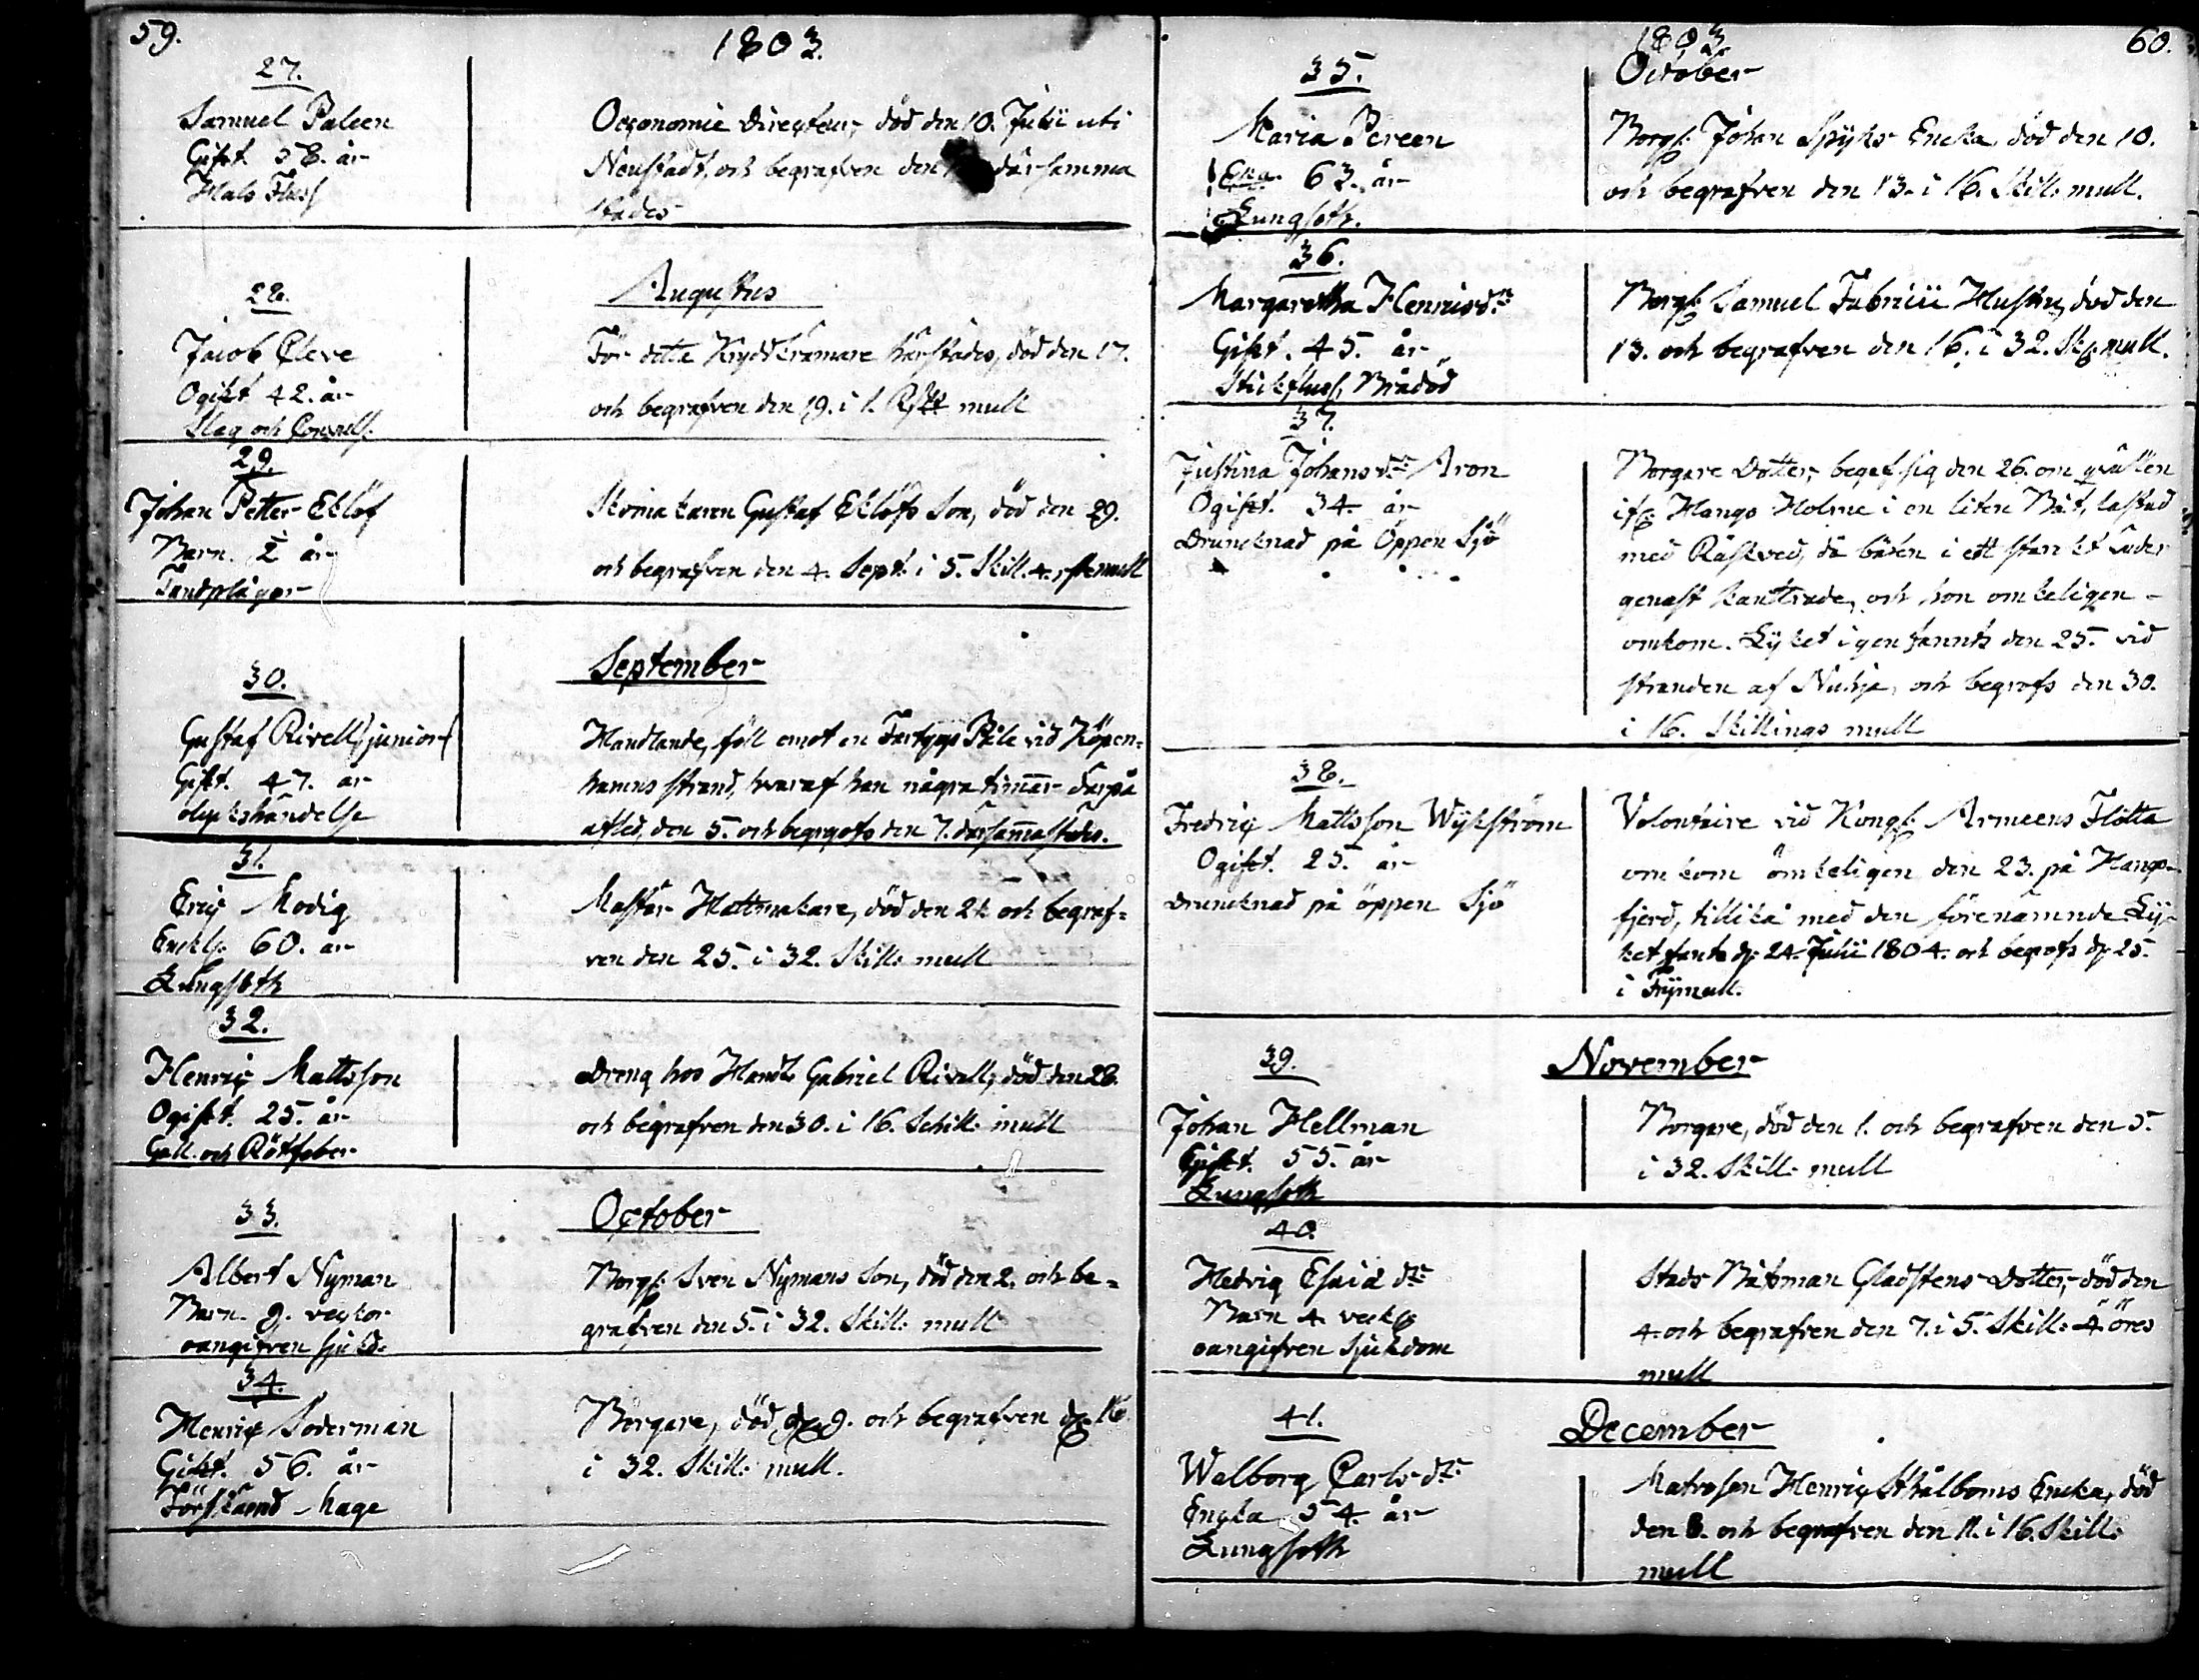 59.
1803.
27.
Samuel Paleen
Gift. 58. år
Hals Fluss
Oeconomie Directeur, död den 10. Julii uti
Neustadt, och begrafven den därsamma
städes
28.
Augustus
Jacob Cleve
Ogift 42. år
Slag och Convuls.
För detta Kryddkramare härstädes, död den 17.
och begrafven den 19. i 1. mull
29.
Johan Petter Eklöf
Barn. 2 år
Tandplågor
Skomakaren Gustaf Eklöfs Son, död den 29.
och begrafven den 4. Sept. i 5. Skill. 4. mull
30.
September
Gustaf Rivell, junior
Gift. 47. år
olyckshändelse
Handlande, föll emot en Fartygs Påle vid Köpen-
hamns strand, hvaraf han några timar därpå
afled, den 5. och begrofs den 7. därsammastädes.
31.
Eric Modig
Enkl. 60. år
Lungsoth
Mäster Hattmakare, död den 21. och begraf-
ven den 25. i 32. Skill: mull
32.
Henric Mattsson
Ogift. 25. år
Gall. och Rötfeber
Dreng hos Handl. Gabriel Rivell, död den 28.
och begrafven den 30. i 16. Schill: mull
33.
October
Albert Nyman
Barn. 9. veckor
oangifven sjukd.
Borg: Sven Nymans Son, död den 2. och be-
grafven den 5. i 32. Skill: mull
34.
Henric Soderman
Gift. 56. år
Förskämd Mage
Borgare, död d. 9. och begrafven d. 16
i 32. Skill: mull.
1803.
60.
October
35.
Maria Pereen
Enka. 63. år
Lungsoth.
Borg: Johan Spyks Encka, död den 10.
och begrafven den 13. i 16. Skill: mull.
36.
Margaretha Henricsdr
Gift. 45. år
Stickfluss, Brådöd
Borg: Samuel Fabricii Hustru, död den
13. och begrafven den 16. i 32. Sk: mull.
37.
Justina Johansdr Aron
Ogift. 34. år
Druncknad på Öppen Sjö
Borgare Dotter, begaf sig den 26. om qvällen
ifr: Hangö Holme i en liten Båt, lastad
med Råstved, då båten i ett starckt väder
genast kantrade, och hon omkeligen -
omkom. Lyket igenfannts den 25. vid
stranden af och begrofs den 30.
i 16. Skillings mull
38.
Fredric Mattsson Wykström
Ogift. 25. år
Druncknad på öppen Sjö
Volontaire vid Kongl: Armeens Flotta
omkom ömkeligen den 23. på Hangö-
fjerd, tillika med den förenämnde Ly-
ket fants d. 24. Julii 1804. och begrofs d. 25.
i Frymull.
39.
November
Johan Hellman
Gift. 55. år
Lungsoth
Borgare, död den 1. och begrafven den 5.
i 32. Skill: mull
40.
Hedvig Esaiædr
Barn 4. veck:
oangifven sjukdom
Stads Båtsman Gladstens Dotter, död den
4. och begrafven den 7. i 5. Skill: 4. öres
mull
41.
December
Walborg Carlsdr
Encka 54. år
Lungsoth
Matrosen Henric Stålboms Encka, död
den 8. och begrafven den 11. i 16. Skill:
mull